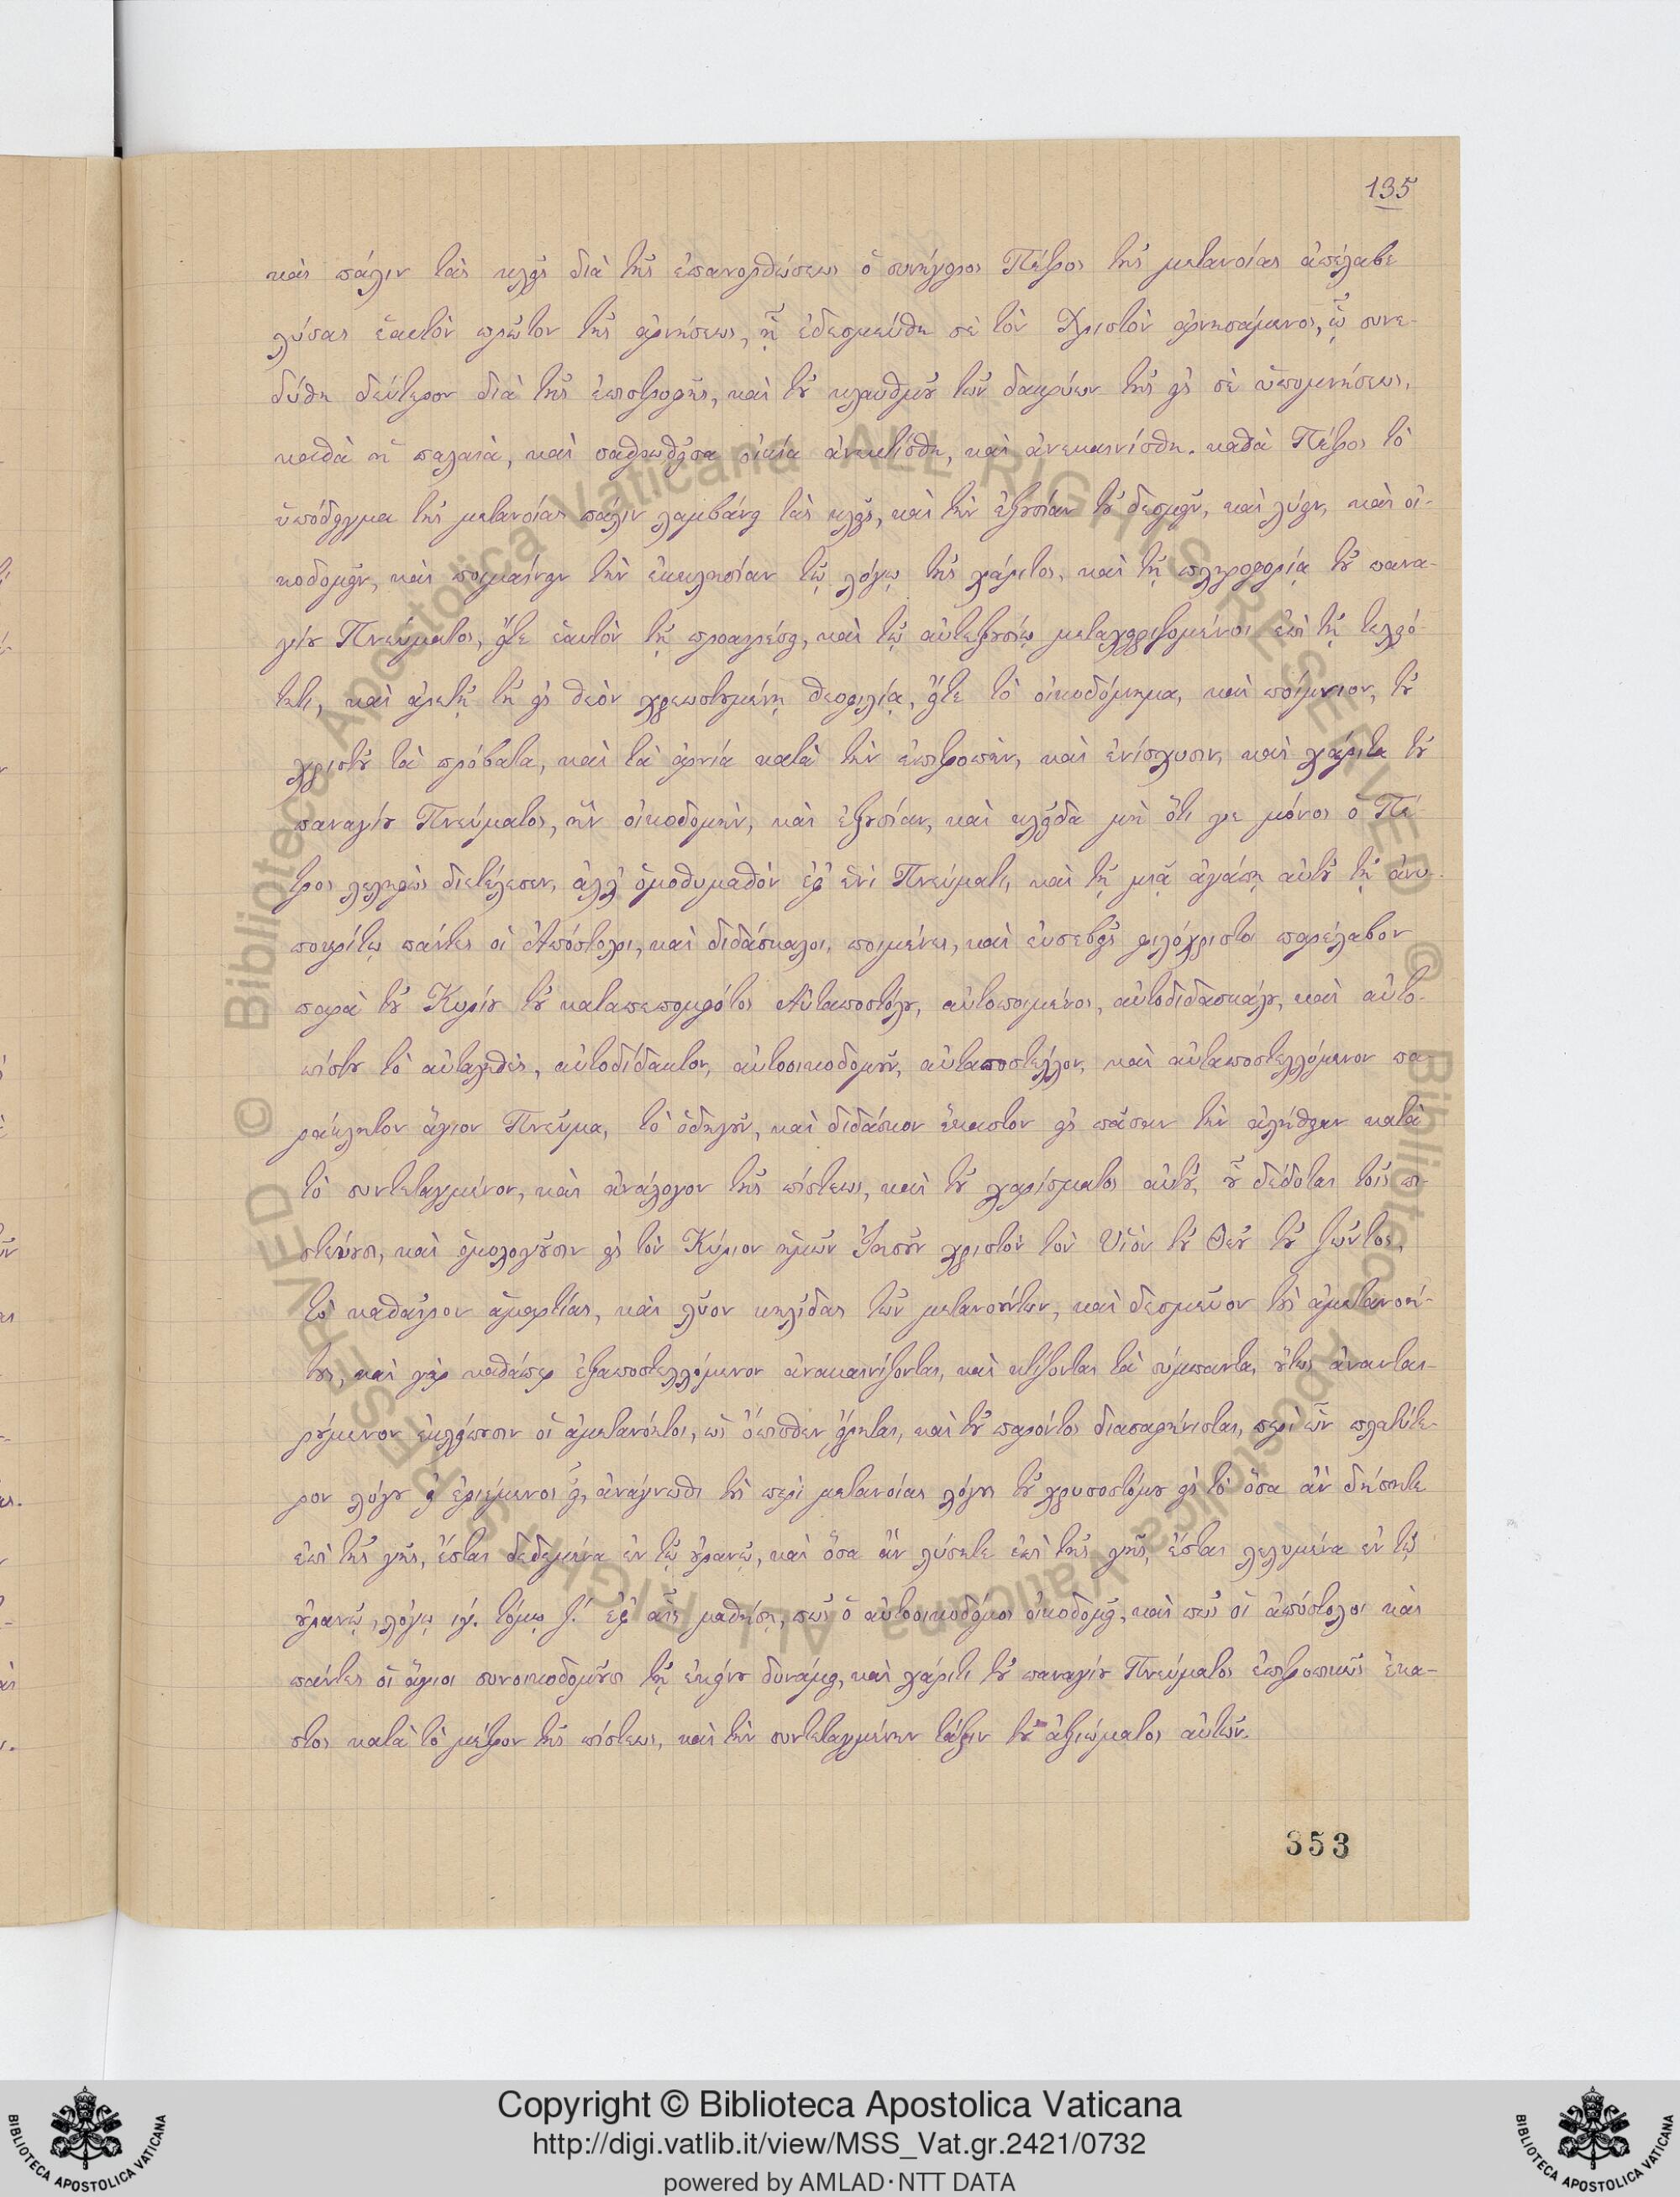 135
καὶ πάλιν τὰς κλεῖς διὰ τῆς ἐπανορθώσεως ὁ συνήγορος Πέτρος τῆς μετανοίας ἀπέλαβε
λύσας ἑαυτὸν πρῶτον τῆς ἀρνήσεως, ᾗ ἐδεσμεύθη σὲ τὸν Χριστὸν ἀρνησάμενος, ᾧ συνε-
δύθη δεύτερον διὰ τῆς ἐπιστροφῆς, καὶ τοῦ κλαυθμοῦ τῶν δακρύων τῆς εἰς σὲ ὑπομνήσεως,
καθὰ ἡ παλαιὰ, καὶ σαθρωθεῖσα οἰκία ἀνεκτίσθη, καὶ ἀνεκαινίσθη. καθὰ Πέτρος τὸ
ὑπόδειγμα τῆς μετανοίας πάλιν λαμβάνει τὰς κλεῖς, καὶ τὴν ἐξουσίαν τοῦ δεσμεῖν, καὶ λύειν, καὶ οἰ-
κοδομεῖν, καὶ ποιμαίνειν τὴν ἐκκλησίαν τῷ λόγῳ τῆς χάριτος, καὶ τῇ πληροφορίᾳ τοῦ πανα-
γίου Πνεύματος, εἴτε ἑαυτὸν τῇ προαιρέσει, καὶ τῷ αὐτεξουσίῳ μεταχειριζομένοι ἐπὶ τῇ τελειό-
τητι, καὶ ἀρετῇ τῇ εἰς θεὸν χρεωστουμένῃ θεοφιλίᾳ, εἴτε τὸ οἰκοδόμημα, καὶ ποίμνιον, τοῦ
χριστοῦ τὰ πρόβατα, καὶ τὰ ἀρνία κατὰ τὴν ἐπιτροπὴν, καὶ ἐνίσχυσιν, καὶ χάριτα τοῦ
παναγίου Πνεύματος, ἣν οἰκοδομὴν, καὶ ἐξουσίαν, καὶ κλεῖδα μὴ ὅτι γε μόνος ὁ Πέ
τρος διετέλεσεν, ἀλλ' ὁμοθυμαδὸν ἐφ' ἑνὶ Πνεύματι, καὶ τῇ μιᾷ ἀγάπῃ αὐτοῦ τῇ ἀνυ-
ποκρίτῳ πάντες οἱ Ἀπόστολοι, καὶ διδάσκαλοι, ποιμένες, καὶ εὐσεβεῖς φιλόχριστοι παρέλαβον
παρὰ τοῦ Κυρίου τοῦ καταπεπομφότος Αὐταποστόλου, αὐτοποιμένος, αὐτοδιδασκάλου, καὶ αὐτο-
πίστου τὸ αὐταληθὲς, αὐτοδίδακτον, αὐτοοικοδομοῦν, αὐταποστέλλον, καὶ αὐταποστελλόμενον πα-
ράκλητον ἅγιον Πνεῦμα, τὸ ὁδηγοῦν, καὶ διδάσκον ἕκαστον εἰς πᾶσαν τὴν ἀλήθειαν κατὰ
τὸ συντεταγμένον, καὶ ἀνάλογον τῆς πίστεως, καὶ τοῦ χαρίσματος αὐτοῦ, οὗ δέδοται τοῖς πι-
στεύουσι, καὶ ὁμολογοῦσιν εἰς τὸν Κύριον ἡμῶν Ἰησοῦν χριστὸν τὸν Υἱὸν τοῦ Θεοῦ τοῦ ζῶντος,
τὸ καθαῖρον ἁμαρτίας, καὶ λῦον κηλίδας τῶν μετανοούντων, καὶ δεσμεῦον τοὺς ἀμετανοή-
τους, καὶ γὰρ καθάπερ ἐξαποστελλόμενον ἀνακαινίζονται, καὶ κτίζονται τὰ σύμπαντα, οὕτως ἀνανται-
ρούμενον ἐκλείπουσιν οἱ ἀμετανόητοι, ὡς ὄπισθεν εἴρηται, καὶ τοῦ παρόντος διασαφήνισται, περὶ ὧν πλατύτε-
ρον λόγου εἰ ἐφιέμενος εἶ, ἀνάγνωθι τοὺς περὶ μετανοίας λόγους τοῦ χρυσοστόμου εἰς τὸ ὅσα ἂν δήσητε
ἐπὶ τῆς γῆς, ἔσται δεδεμένα ἐν τῷ οὐρανῷ, καὶ ὅσα ἂν λύσητε ἐπὶ τῆς γῆς, ἔσται λελυμένα ἐν τῷ
οὐρανῷ, λόγῳ ιγ΄. τόμῳ ζ΄. ἐφ' αἷς μαθήσῃ, πῶς ὁ αὐτοοικοδόμος οἰκοδομεῖ, καὶ πῶς οἱ ἀπόστολοι καὶ
πάντες οἱ ἅγιοι συνοικοδομοῦσι τῇ ἐκείνου δυνάμει, καὶ χάριτι τοῦ παναγίου Πνεύματος ἐπιτροπικῶς ἕκα-
στος κατὰ τὸ μέτρον τῆς πίστεως, καὶ τὴν συντεταγμένην τάξιν τοῦ ἀξιώματος αὐτῶν.
353
Copyright © Biblioteca Apostolica Vaticana
http://digi.vatlib.it/view/MSS_Vat.gr.2421/0732
powered by AMLAD·NTT DATA